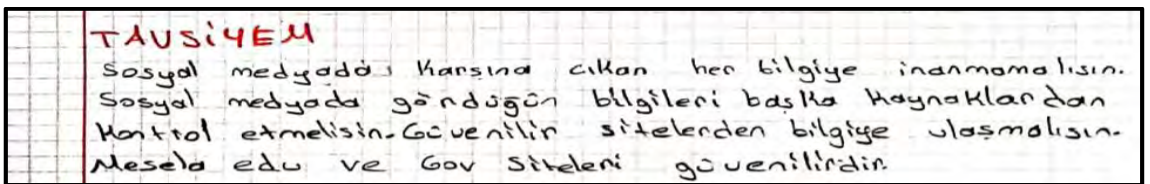 TAVSİYEM
Sosyal medyada, karşına cıkan her bilgiye inanmamalısın.
Sosyal medyada gördüğün bilgileri başka kaynaklardan
kontrol etmelisin. Güvenilir sitelerden bilgiye ulaşmalısın.
Mesela edu ve Gov siteleri güvenilirdir.